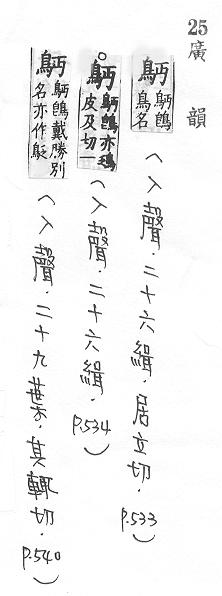 25 廣韻
鴔 鴔鵖鳥名 (入聲.二十六緝.居立切. P.533)
鴔 鴔鵖亦皮及切一 (入聲.二十六緝. P.534)
鴔 鴔鵖戴勝別名亦作 (入聲.二十九葉.其輒切. P.540)